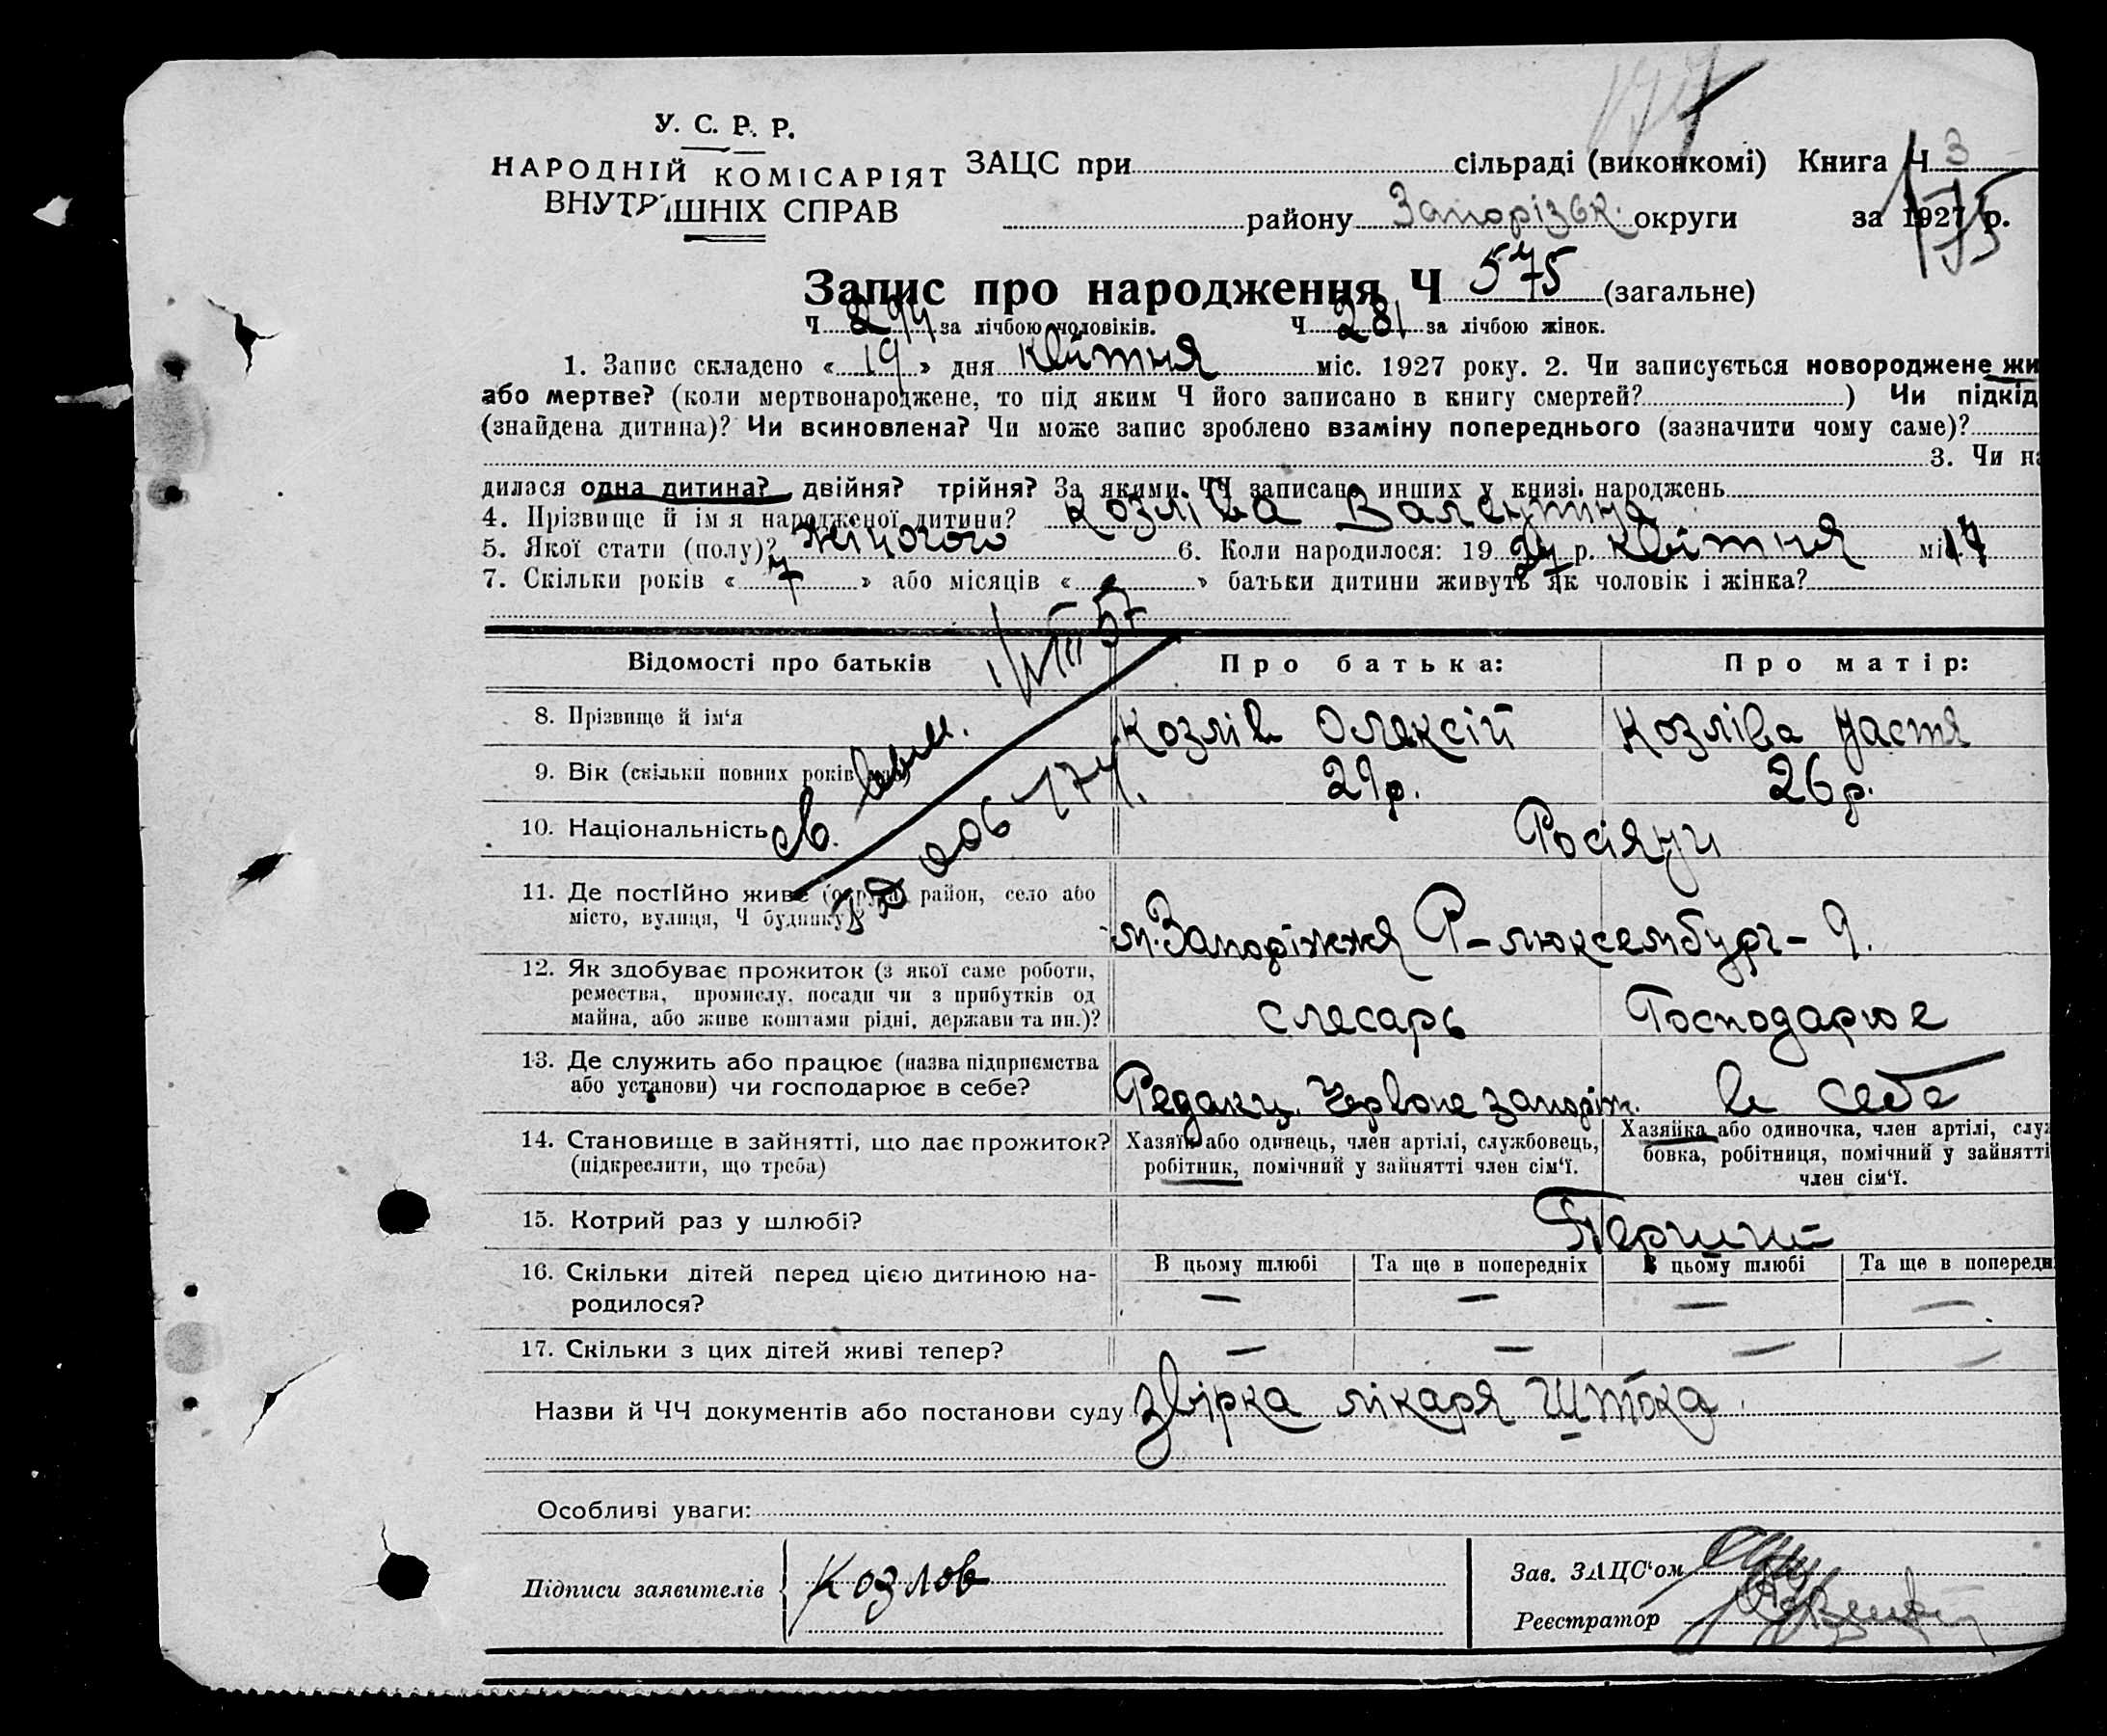 174
У. С. Р. Р.
НАРОДНІЙ КОМІСАРІЯТ
ВНУТРІШНІХ СПРАВ
ЗАЦС при сільраді (виконкомі) Книга Ч 3
району Запорізьк. округи за 1927 р.
175
Запис про народження Ч 575 (загальне)
Ч 294 за лічбою чоловіків. Ч 281 за лічбою жінок.
1. Запис складено « 19 » дня квітня міс. 1927 року. 2. Чи записується новороджене жи
або мертве? (коли мертвонароджене, то під яким Ч його записано в книгу смертей? ) Чи підкід
(знайдена дитина)? Чи всиновлена? Чи може запис зроблено взаміну попереднього (зазначити чому саме)?
3. Чи на
дилася одна дитина? двійня? трійня? За якими ЧЧ записано инших у книзі народжень
4. Прізвище й імя народженої дитини? Козліва Валентина
5. Якої стати (полу)? жіночого 6. Коли народилося: 19 27 р. квітня мі 17
7. Скільки років « 7 » або місяців « - » батьки дитини живуть як чоловік і жінка?
1/VIII 57
Відомості про батьків Про батька: Про матір:
8. Прізвище й ім'я Козлів Олексій Козліва Настя
9. Вік (скільки повних років 29р. 26р.
10. Національність Росіяни
св.
006174.
11. Де постійно живе (округа, район, село або
місто, вулиця, Ч будинку)? м. Запоріжжя Р-люксембург- 9.
12. Як здобуває прожиток (з якої саме роботи,
ремества, промислу, посади чи з прибутків од
майна, або живе коштами рідні, держави та ин.)? слесарь Господарює
13. Де служить або працює (назва підприємства
або установи) чи господарює в себе? Редакц. Червоне запоріж. в себе
14. Становище в зайнятті, що дає прожиток?
(підкреслити, що треба)
Хазяїн або одинець, член артілі, службовець,
робітник, помічний у зайнятті член сім'ї.
Хазяйка або одиночка, член артілі, служ
бовка, робітниця, помічний у зайнятті
член сім'ї.
15. Котрий раз у шлюбі? Перший
16. Скільки дітей перед цією дитиною на-
родилося?
В цьому шлюбі Та ще в попередніх В цьому шлюбі Та ще в попередн
— — — —
17. Скільки з цих дітей живі тепер? — — — —
Назви й ЧЧ документів або постанови суду звірка лікаря Штока
Особливі уваги:
Підписи заявителів Козлов
Зав. ЗАЦС'ом
Реєстратор